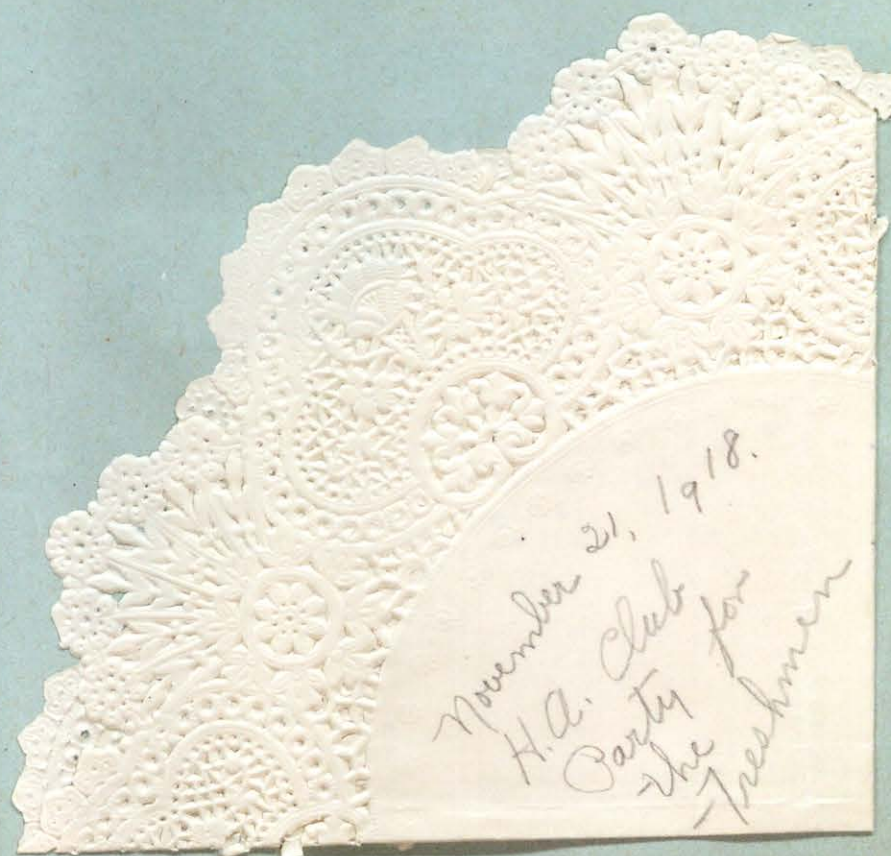 November 21, 1918.
H.A. Club
Party for
the
Freshmen